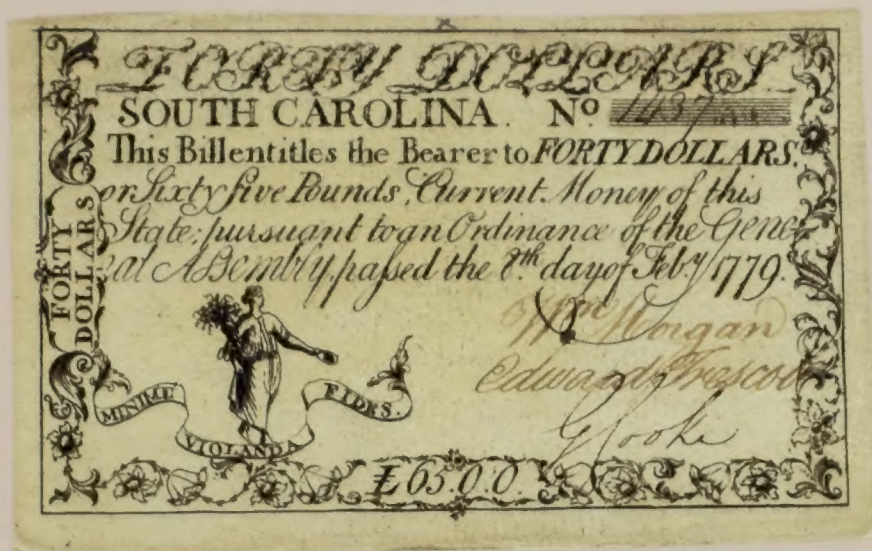 FORTY DOLLARS
SOUTH CAROLINA. No 1437
This Bill entitles the Bearer to FORTY DOLLARS.
or Sixty five Pounds, Current Money of this
State; pursuant to an Ordinance of the Gene-
ral Assembly, passed the 8th. day of Feb.y 1779.
FORTY
DOLLARS
Wm Morgan
Edward Trescot
G Cooke
MINIME
VIOLANDA
FIDES.
£65.0.0